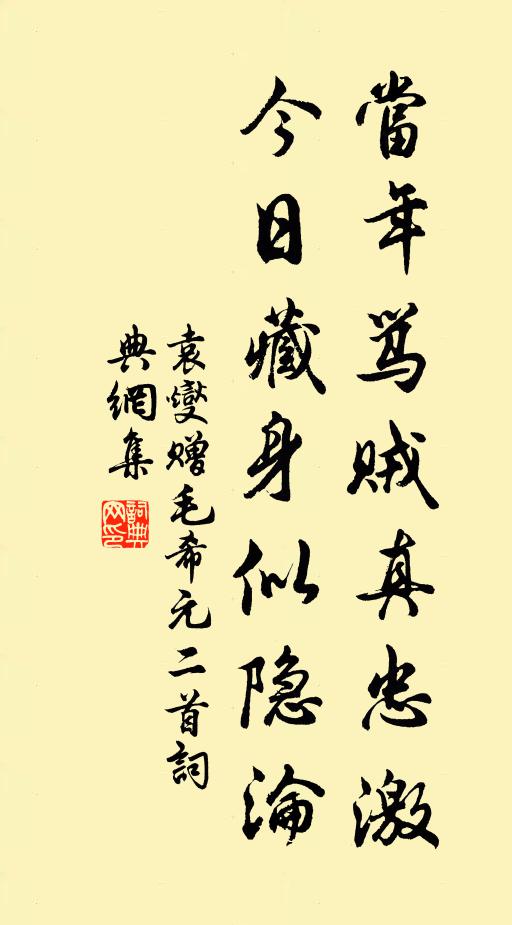 當年骂贼真忠激
今日藏身似隐淪
袁燮赠毛希元二首詞
典網集
詞典网印